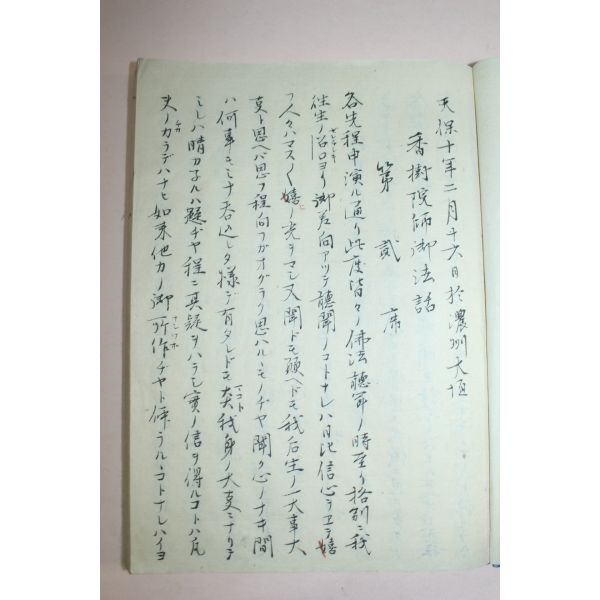 天保十年二月十六日於濃州大垣
香樹院師御法話
第貳席
各先程申演ル通リ此度皆々ノ佛法聽聞ノ時至リ格別ニ我
往生ノ沼口ヨリ御差向アツテ聽聞ノコトナレハ日比信心ヲヱテ嬉
フ人々ハマス〱嬉ノ光ヲマシ又聞ドモ願ヘドモ我后生ノ一大事大
事ト思ヘバ思フ程向フガオグラク思ハルヽモノヂヤ聞ク心ノナキ間
ハ何事モミナ呑込シタ様デ有タレドモ我身ノ大事ニナリテ
ミレハ晴カヌルハ疑ヂヤ程ニ其疑ヲハラシ實ノ信ヲ得ルコトハ凡
夫ノカラデハナヒ如来他力ノ御所作ヂヤト仰ラルヽコトナレハイヨ